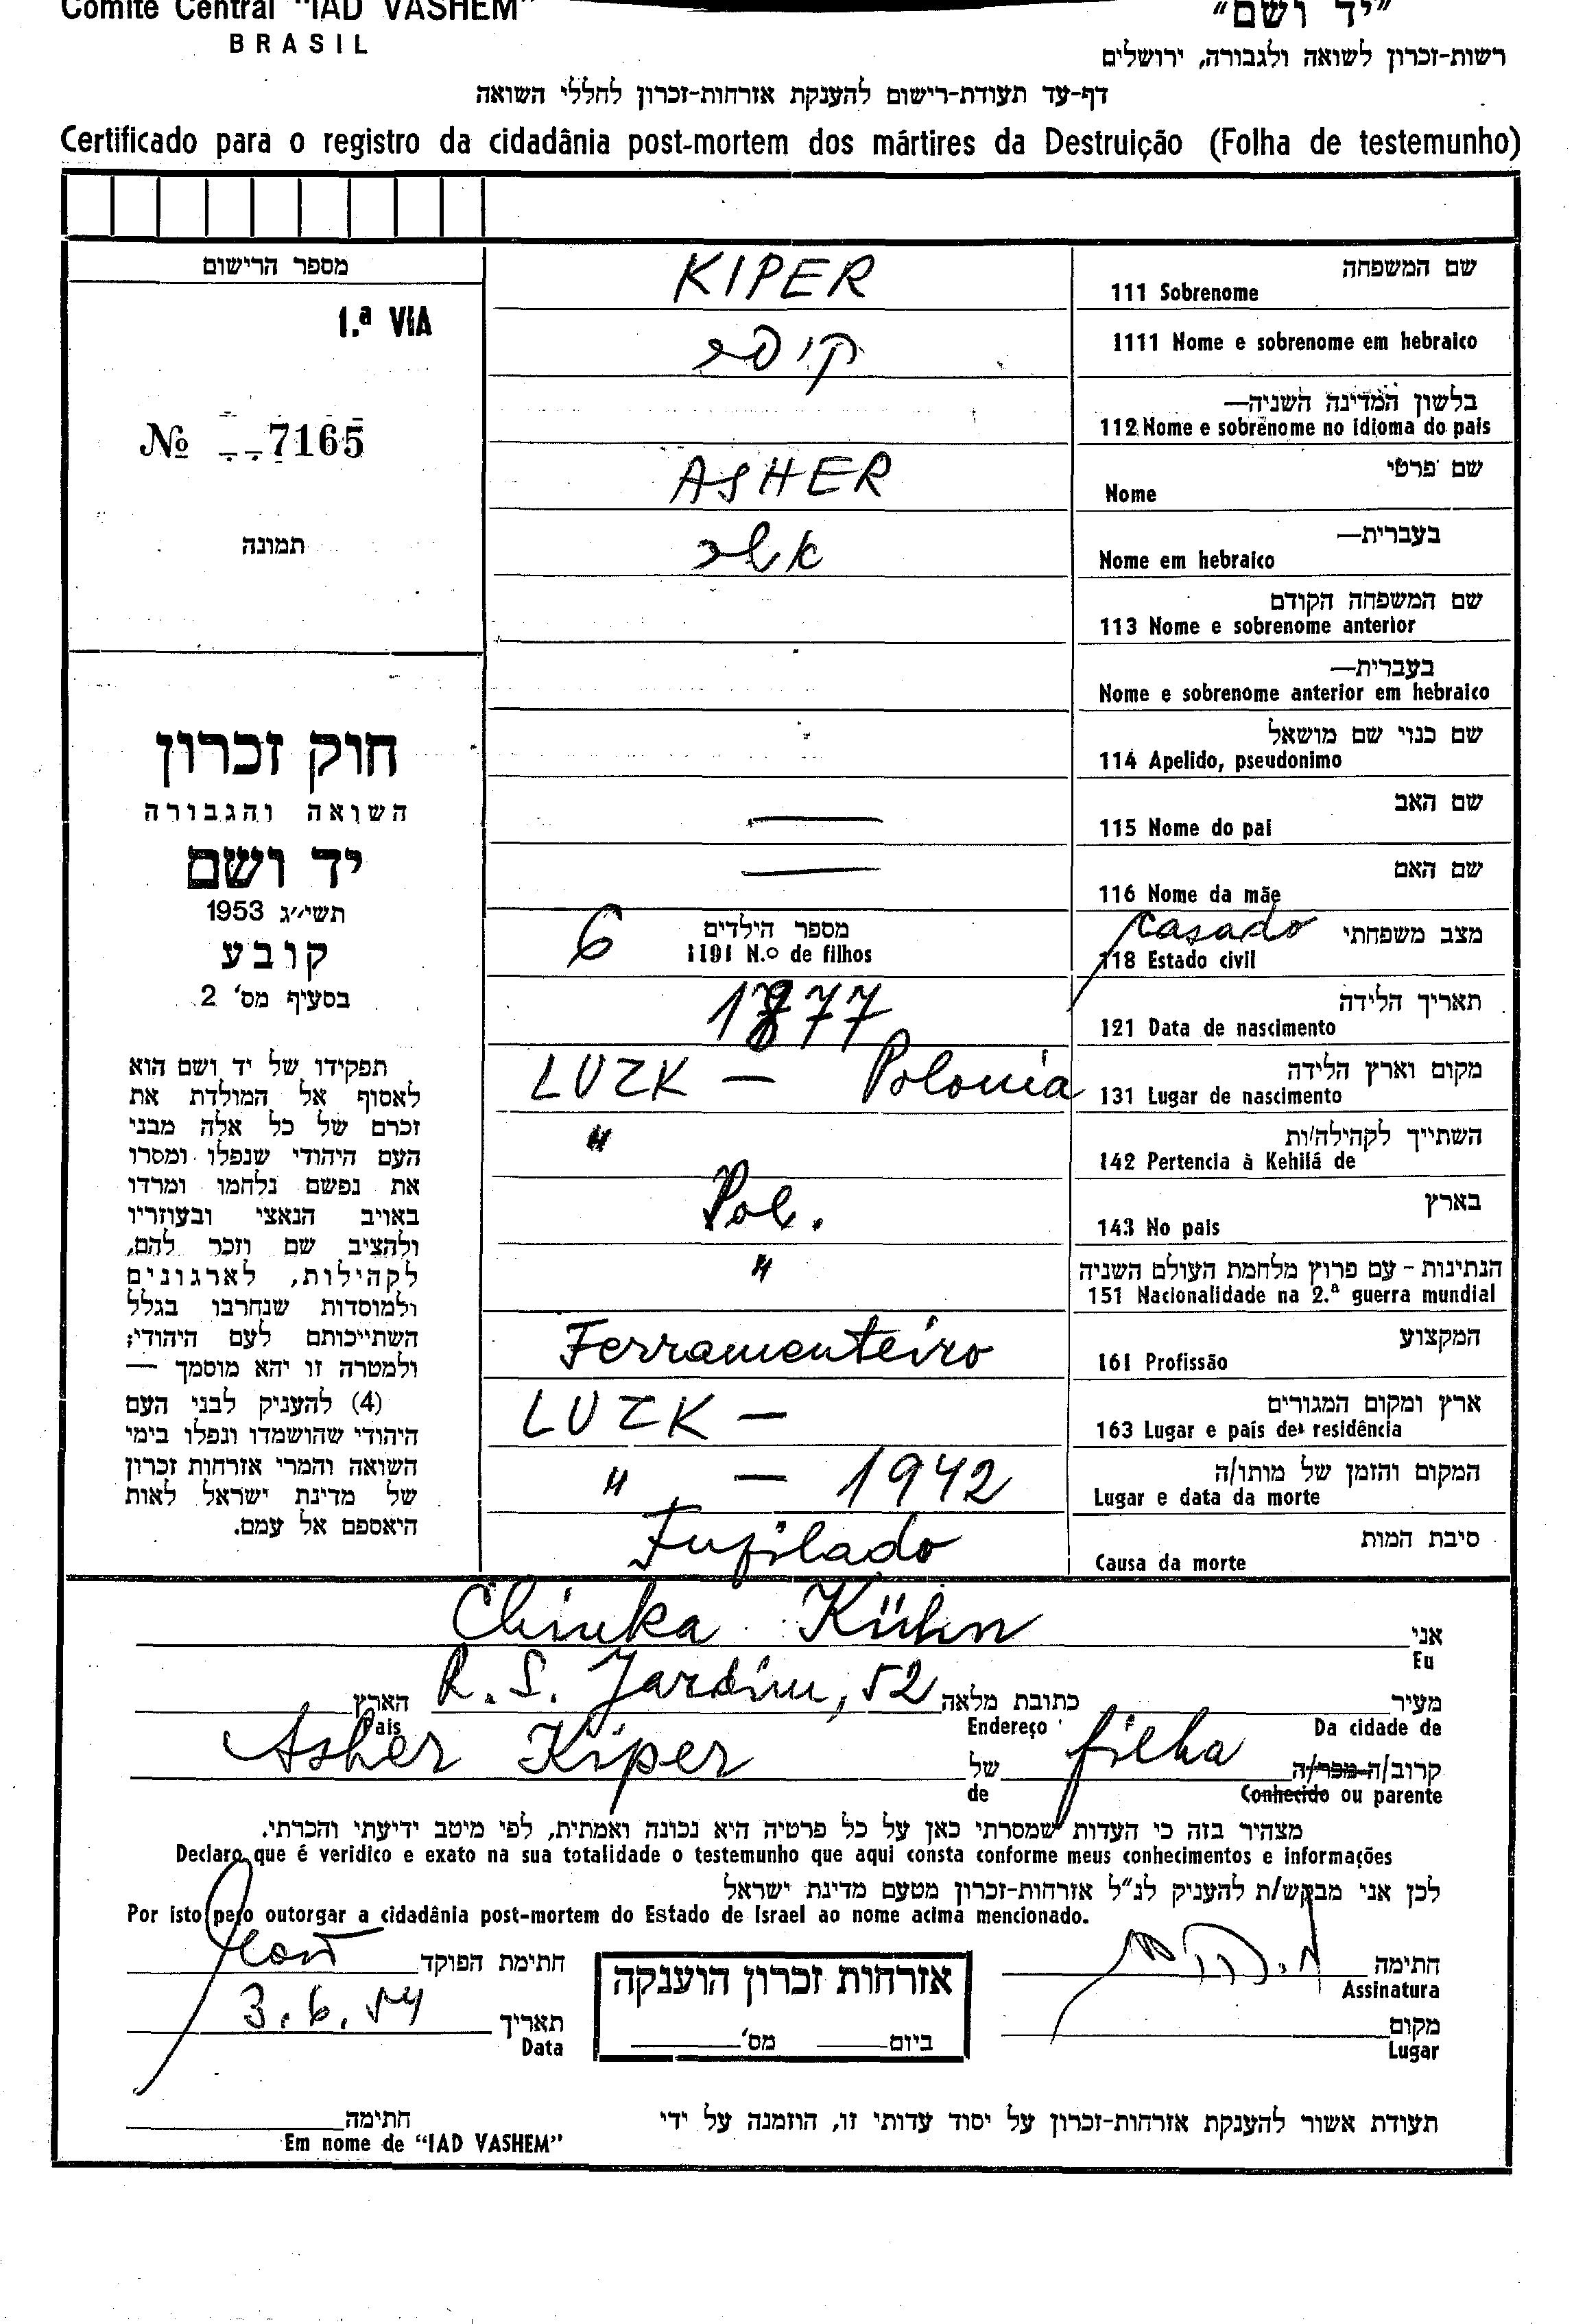 Comité Central "IAD VASHEM"
BRASIL
"יד ושם"
רשות-זכרון לשואה ולגבורה, ירושלים
דף-עד תעודת-רישום להענקת אזרחות-זכרון לחללי השואה
Certificado para o registro da cidadânia post-mortem dos mártires da Destruição (Folha de testemunho)
מספר הרישום
1.ª VIA
№ 7165
תמונה
חוק זכרון
השואה והגבורה
יד ושם
תשי״ג 1953
קובע
בסעיף מס' 2
תפקידו של יד ושם הוא
לאסוף אל המולדת את
זכרם של כל אלה מבני
העם היהודי שנפלו ומסרו
את נפשם נלחמו ומרדו
באויב הנאצי ובעוזריו
ולהציב שם וזכר להם,
לקהילות, לארגונים
ולמוסדות שנחרבו בגלל
השתייכותם לעם היהודי;
ולמטרה זו יהא מוסמך —
(4) להעניק לבני העם
היהודי שהושמדו ונפלו בימי
השואה והמרי אזרחות זכרון
של מדינת ישראל לאות
היאספם אל עמם.
שם המשפחה
111 Sobrenome
KIPER
1111 Nome e sobrenome em hebraico
קיפר
בלשון המדינה השניה—
112 Nome e sobrenome no idioma do pais
שם פרטי
Nome
ASHER
בעברית—
Nome em hebraico
אשר
שם המשפחה הקודם
113 Nome e sobrenome anterior
בעברית—
Nome e sobrenome anterior em hebraico
שם כנוי שם מושאל
114 Apelido, pseudonimo
שם האב
115 Nome do pai
—
שם האם
116 Nome da mãe
—
מצב משפחתי casado
118 Estado civil
מספר הילדים 6
1191 N.o de filhos
תאריך הלידה
121 Data de nascimento
1877
מקום וארץ הלידה
131 Lugar de nascimento
LUZK — Polonia
השתייך לקהילה/ות
142 Pertencia à Kehilá de
"
בארץ
143 No pais
Pol.
הנתינות - עם פרוץ מלחמת העולם השניה
151 Nacionalidade na 2.ª guerra mundial
"
המקצוע
161 Profissão
Ferramenteiro
ארץ ומקום המגורים
163 Lugar e país de residência
LUZK —
המקום והזמן של מותו/ה
Lugar e data da morte
" — 1942
סיבת המות
Causa da morte
Fusilado
אני Chinka Kühn
Eu
מעיר כתובת מלאה R. S. Jardim, 52 הארץ
Da cidade de Endereço Pais
קרוב/ה מפר/ה filha של Asher Kiper
Conhecido ou parente de
מצהיר בזה כי העדות שמסרתי כאן על כל פרטיה היא נכונה ואמתית, לפי מיטב ידיעתי והכרתי.
Declaro que é veridico e exato na sua totalidade o testemunho que aqui consta conforme meus conhecimentos e informações
לכן אני מבקש/ת להעניק לנ"ל אזרחות-זכרון מטעם מדינת ישראל
Por isto peço outorgar a cidadânia post-mortem do Estado de Israel ao nome acima mencionado.
חתימה
Assinatura
חתימת הפוקד
אזרחות זכרון הוענקה
ביום מס'
מקום
Lugar
תאריך 3.6.54
Data
תעודת אשור להענקת אזרחות-זכרון על יסוד עדותי זו, הוזמנה על ידי
חתימה
Em nome de "IAD VASHEM"